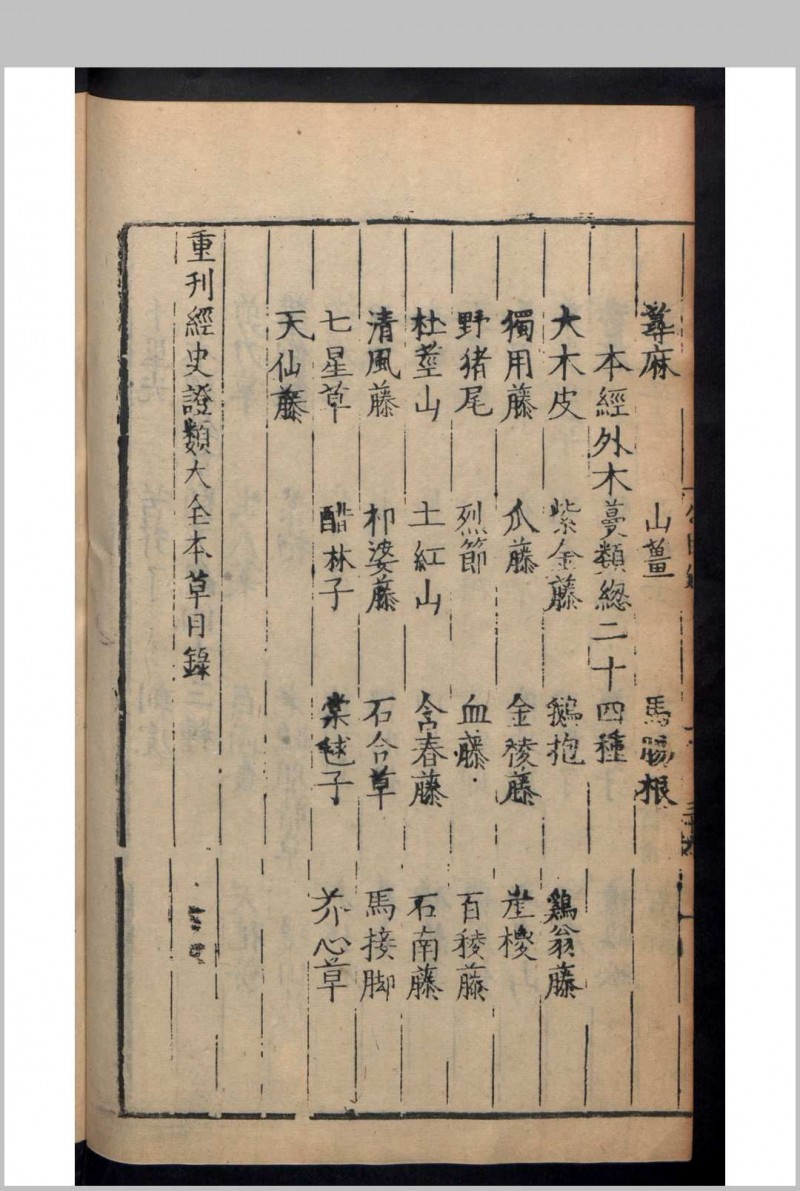 蕁麻 山薑 馬腸根
本經外木蔓類緫二十四種
大木皮 紫金藤 鵝抱 鷄翁藤
獨用藤 瓜藤 金稜藤 崖椶
野猪尾 烈節 血藤 百稜藤
杜莖山 土紅山 含春藤 石南藤
清風藤 杓婆藤 石合草 馬接脚
七星草 醋林子 棠毬子 芥心草
天仙藤
重刊經史證類大全本草目錄